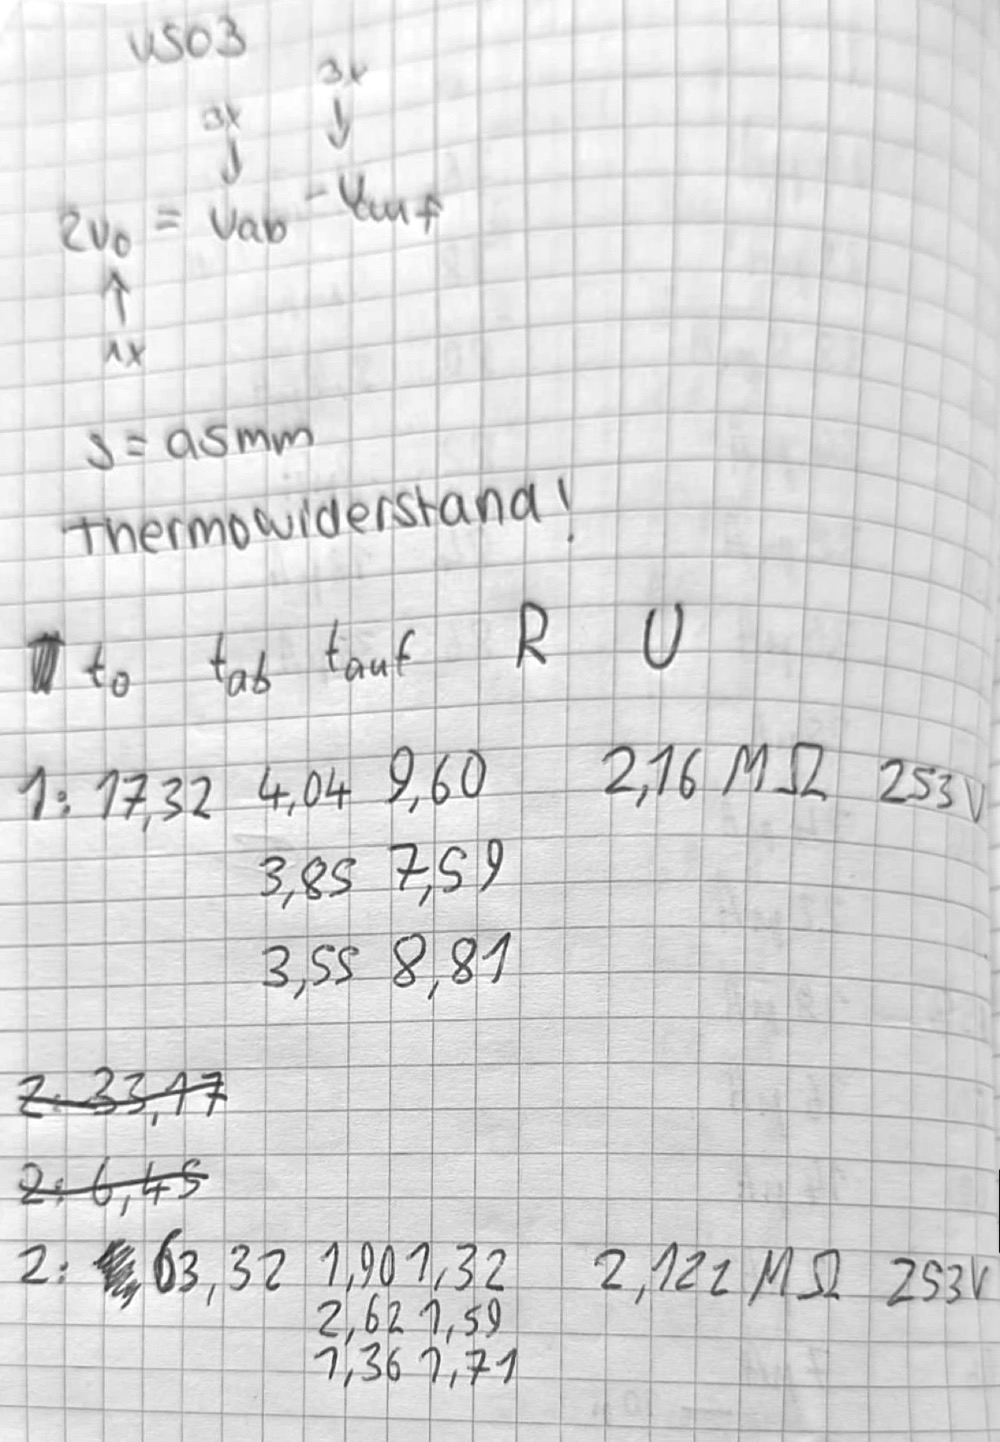 US03
3x
3x
2v₀ = vab - vauf
↑
1x
s = 0,5mm
Thermowiderstand!
t₀ tab tauf R U
1: 17,32 4,04 9,60 2,16 MΩ 253V
3,85 7,59
3,55 8,81
2: 33,17
2: 6,45
2: 63,32 1,90 1,32 2,122 MΩ 253V
2,62 1,59
1,36 1,71